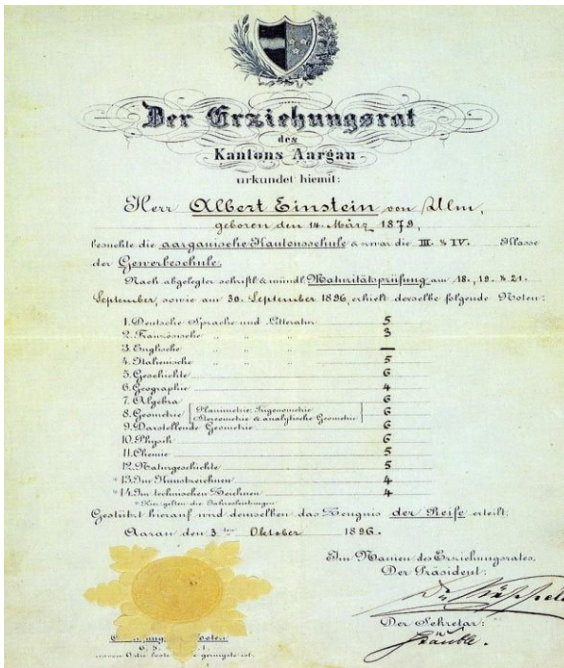 Der Erziehungsrat
des
Kantons Aargau
urkundet hiemit:
Herr Albert Einstein von Ulm,
geboren den 14. März 1879,
besuchte die aargauische Kantonsschule & zwar die III. & IV. Klasse
der Gewerbeschule.
Nach abgelegter schriftl. & mündl. Maturitätsprüfung am 18., 19. & 21.
September, sowie am 30. September 1896, erhielt derselbe folgende Noten:
1. Deutsche Sprache und Litteratur 5
2. Französische " " " 3
3. Englische " " " —
4. Italienische " " " 5
5. Geschichte 6
6. Geographie 4
7. Algebra 6
8. Geometrie (Planimetrie, Trigonometrie 6
Stereometrie & analytische Geometrie)
9. Darstellende Geometrie 6
10. Physik 6
11. Chemie 5
12. Naturgeschichte 5
* 13. Im Kunstzeichnen 4
* 14. Im technischen Zeichnen 4
* Hier gelten die Jahresleistungen
Gestützt hierauf wird demselben das Zeugnis der Reife erteilt.
Aarau den 3ten Oktober 1896.
Im Namen des Erziehungsrates,
Der Präsident:
Der Sekretär: